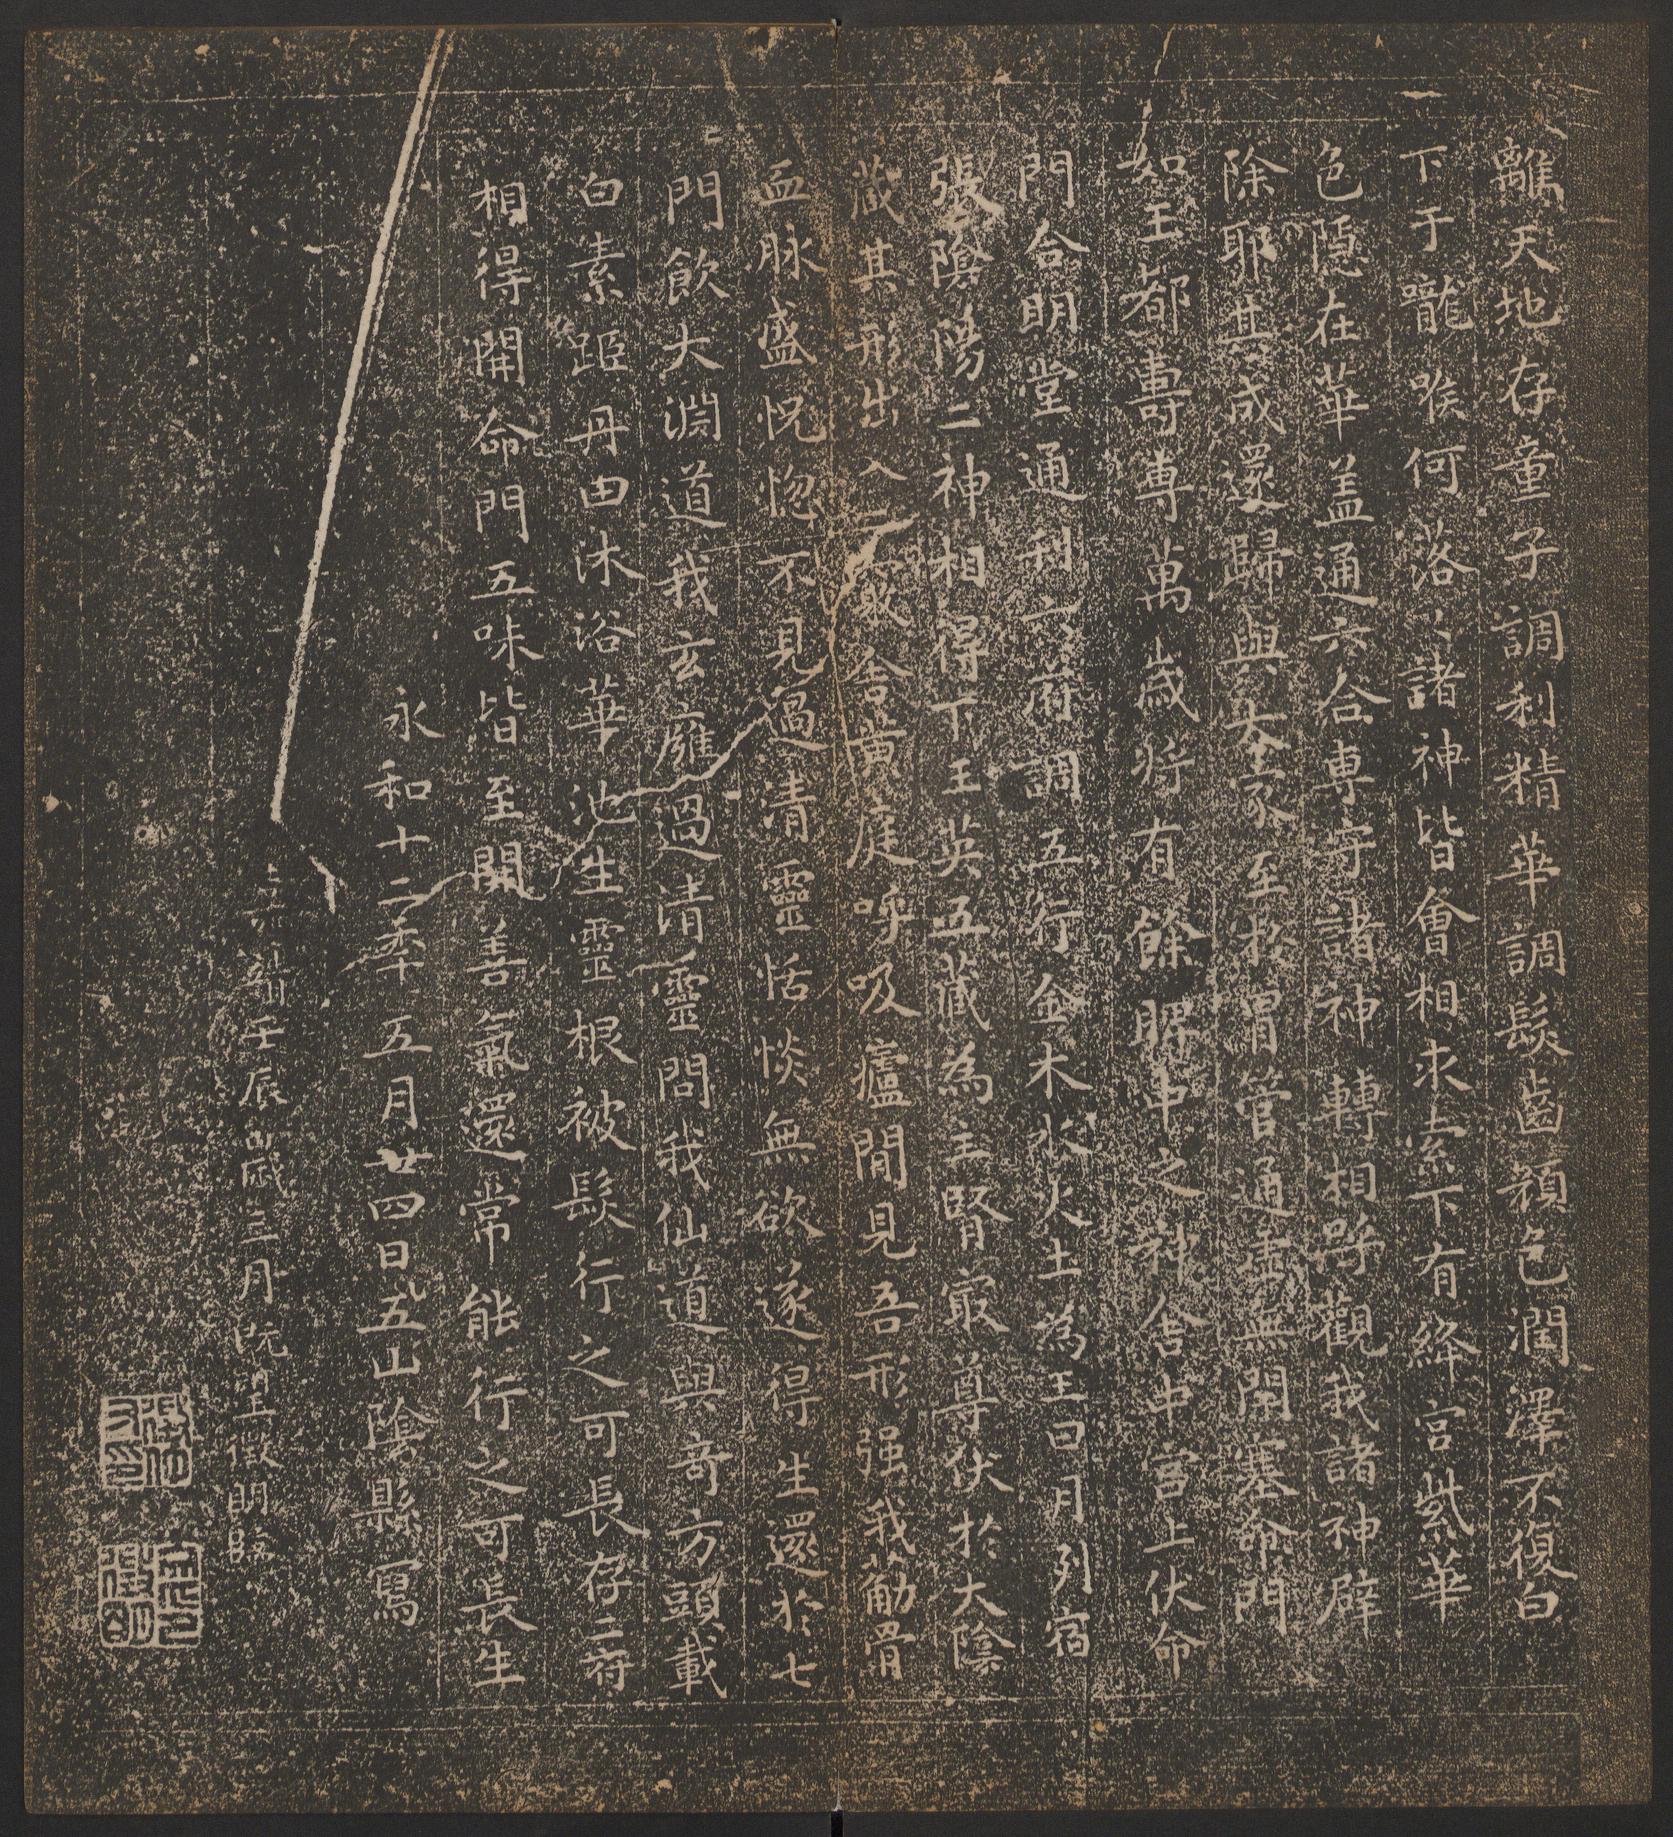 離天地存童子調利精華調髮齒顏色潤澤不復白
下于嚨喉何落〻諸神皆會相求索下有絳宮紫華
色隱在華盖通六合専守諸神轉相呼觀我諸神辟
除耶其成還歸與大家至於胃管通虛無閉塞命門
如玉都壽専萬歲將有餘脾中之神舍中宮上伏命
門合明堂通利六府調五行金木水火土為王日月列宿
張陰陽二神相得下王英五藏為主腎㝡尊伏於大陰
藏其形出入二竅舍黃庭呼吸廬間見吾形强我筋骨
血脉盛恍惚不見過清靈恬惔無欲遂得生還於七
門飲大淵道我玄廱過清靈問我仙道與奇方頭載
白素距丹由沐浴華池生靈根被髮行之可長存二府
相得開命門五味皆至開善氣還常能行之可長生
永和十二年五月廿四日五山陰縣寫
嘉靖壬辰歲三月既望徵明臨